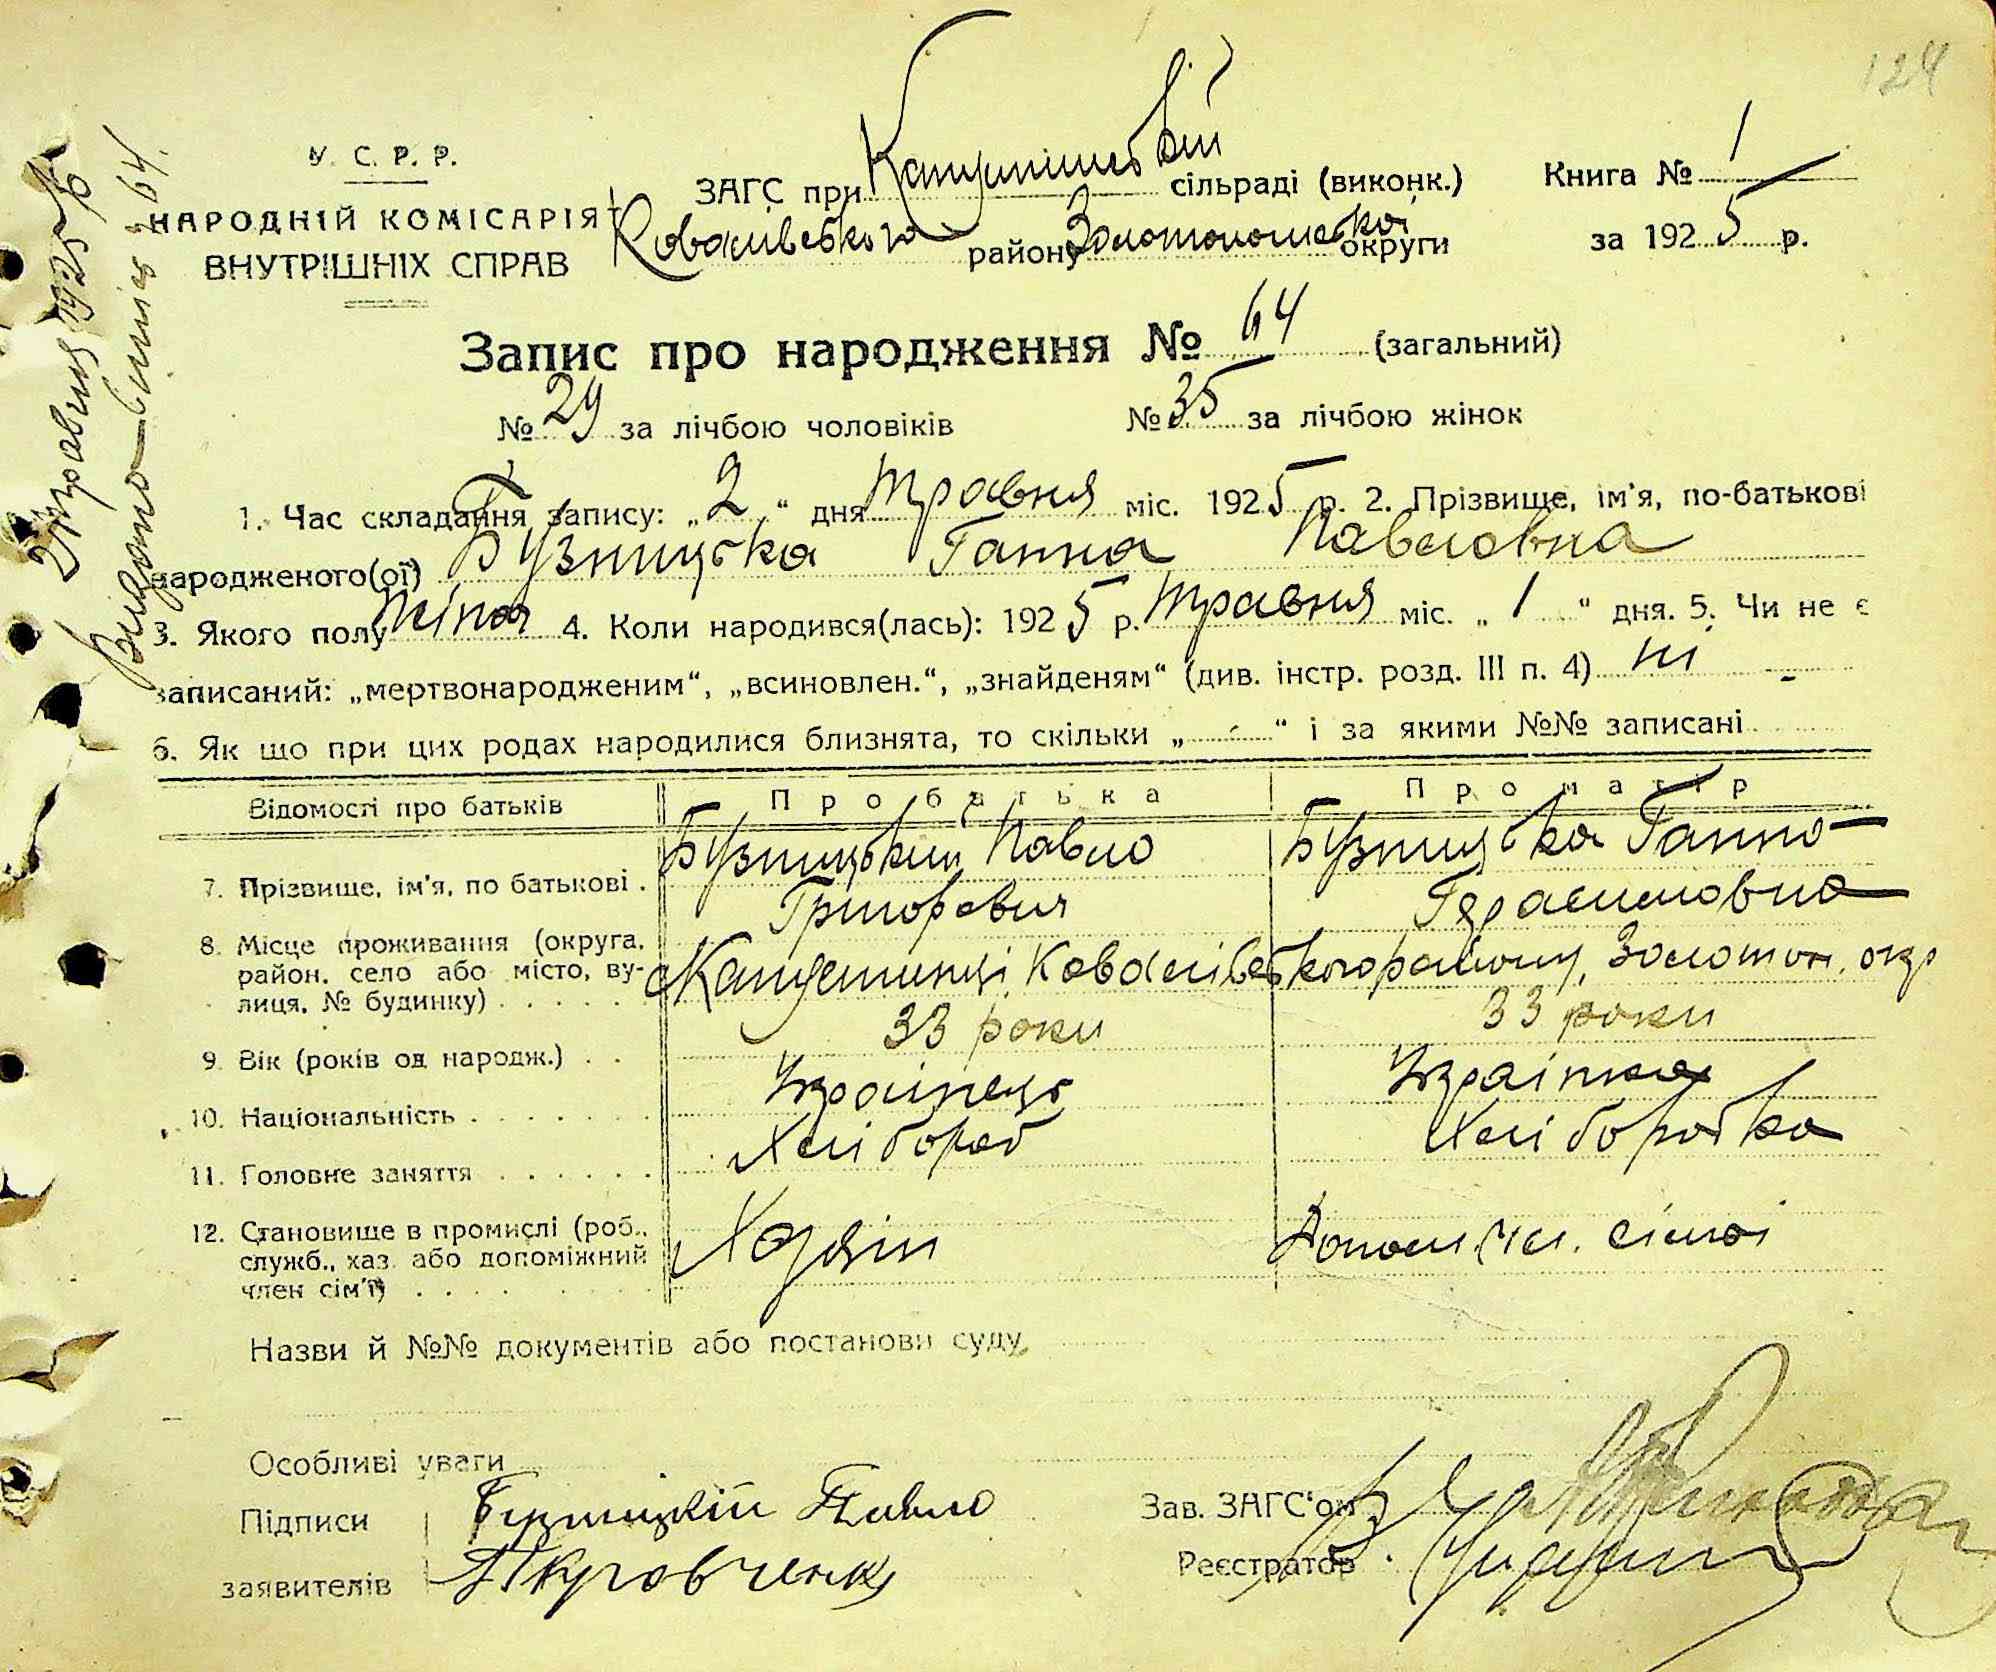 124
У. С. Р. Р.
НАРОДНІЙ КОМІСАРІЯТ
ВНУТРІШНІХ СПРАВ
ЗАГС при сільраді (виконк.)
Ковалівського району Золотоношської округи
Книга № 1
за 1925 р.
2 травня 1925 р.
Видано витяг № 64.
Запис про народження № 64 (загальний)
№ 29 за лічбою чоловіків № 35 за лічбою жінок
1. Час складання запису: „2“ дня травня міс. 1925 р. 2. Прізвище, ім'я, по-батькові
народженого(ої) Бузницька Ганна Павловна
3. Якого полу жіноч 4. Коли народився(лась): 1925 р. травня міс. „1“ дня. 5. Чи не є
записаний: „мертвонародженим“, „всиновлен.“, „знайденям“ (див. інстр. розд. III п. 4) ні
6. Як що при цих родах народилися близнята, то скільки „ “ і за якими №№ записані
Відомості про батьків Про батька Про матір
7. Прізвище, ім'я, по батькові . Бузницький Павло Григорович Бузницька Ганна Герасимовна
8. Місце проживання (округа,
район, село або місто, ву-
лиця, № будинку) . . . . . с Ковалівського району, Золотон. окр
9. Вік (років од народж.) . . 33 роки 33 роки
10. Національність . . . . . . Українець Українка
11. Головне заняття . . . . . . Хлібороб Хліборобка
12. Становище в промислі (роб.,
служб., хаз. або допоміжний
член сім'ї) . . . . Хазяін Допом. чл. сімьі
Назви й №№ документів або постанови суду
Особливі уваги
Підписи Бузницкій Павло
заявителів
Зав. ЗАГС'ом
Реєстратор